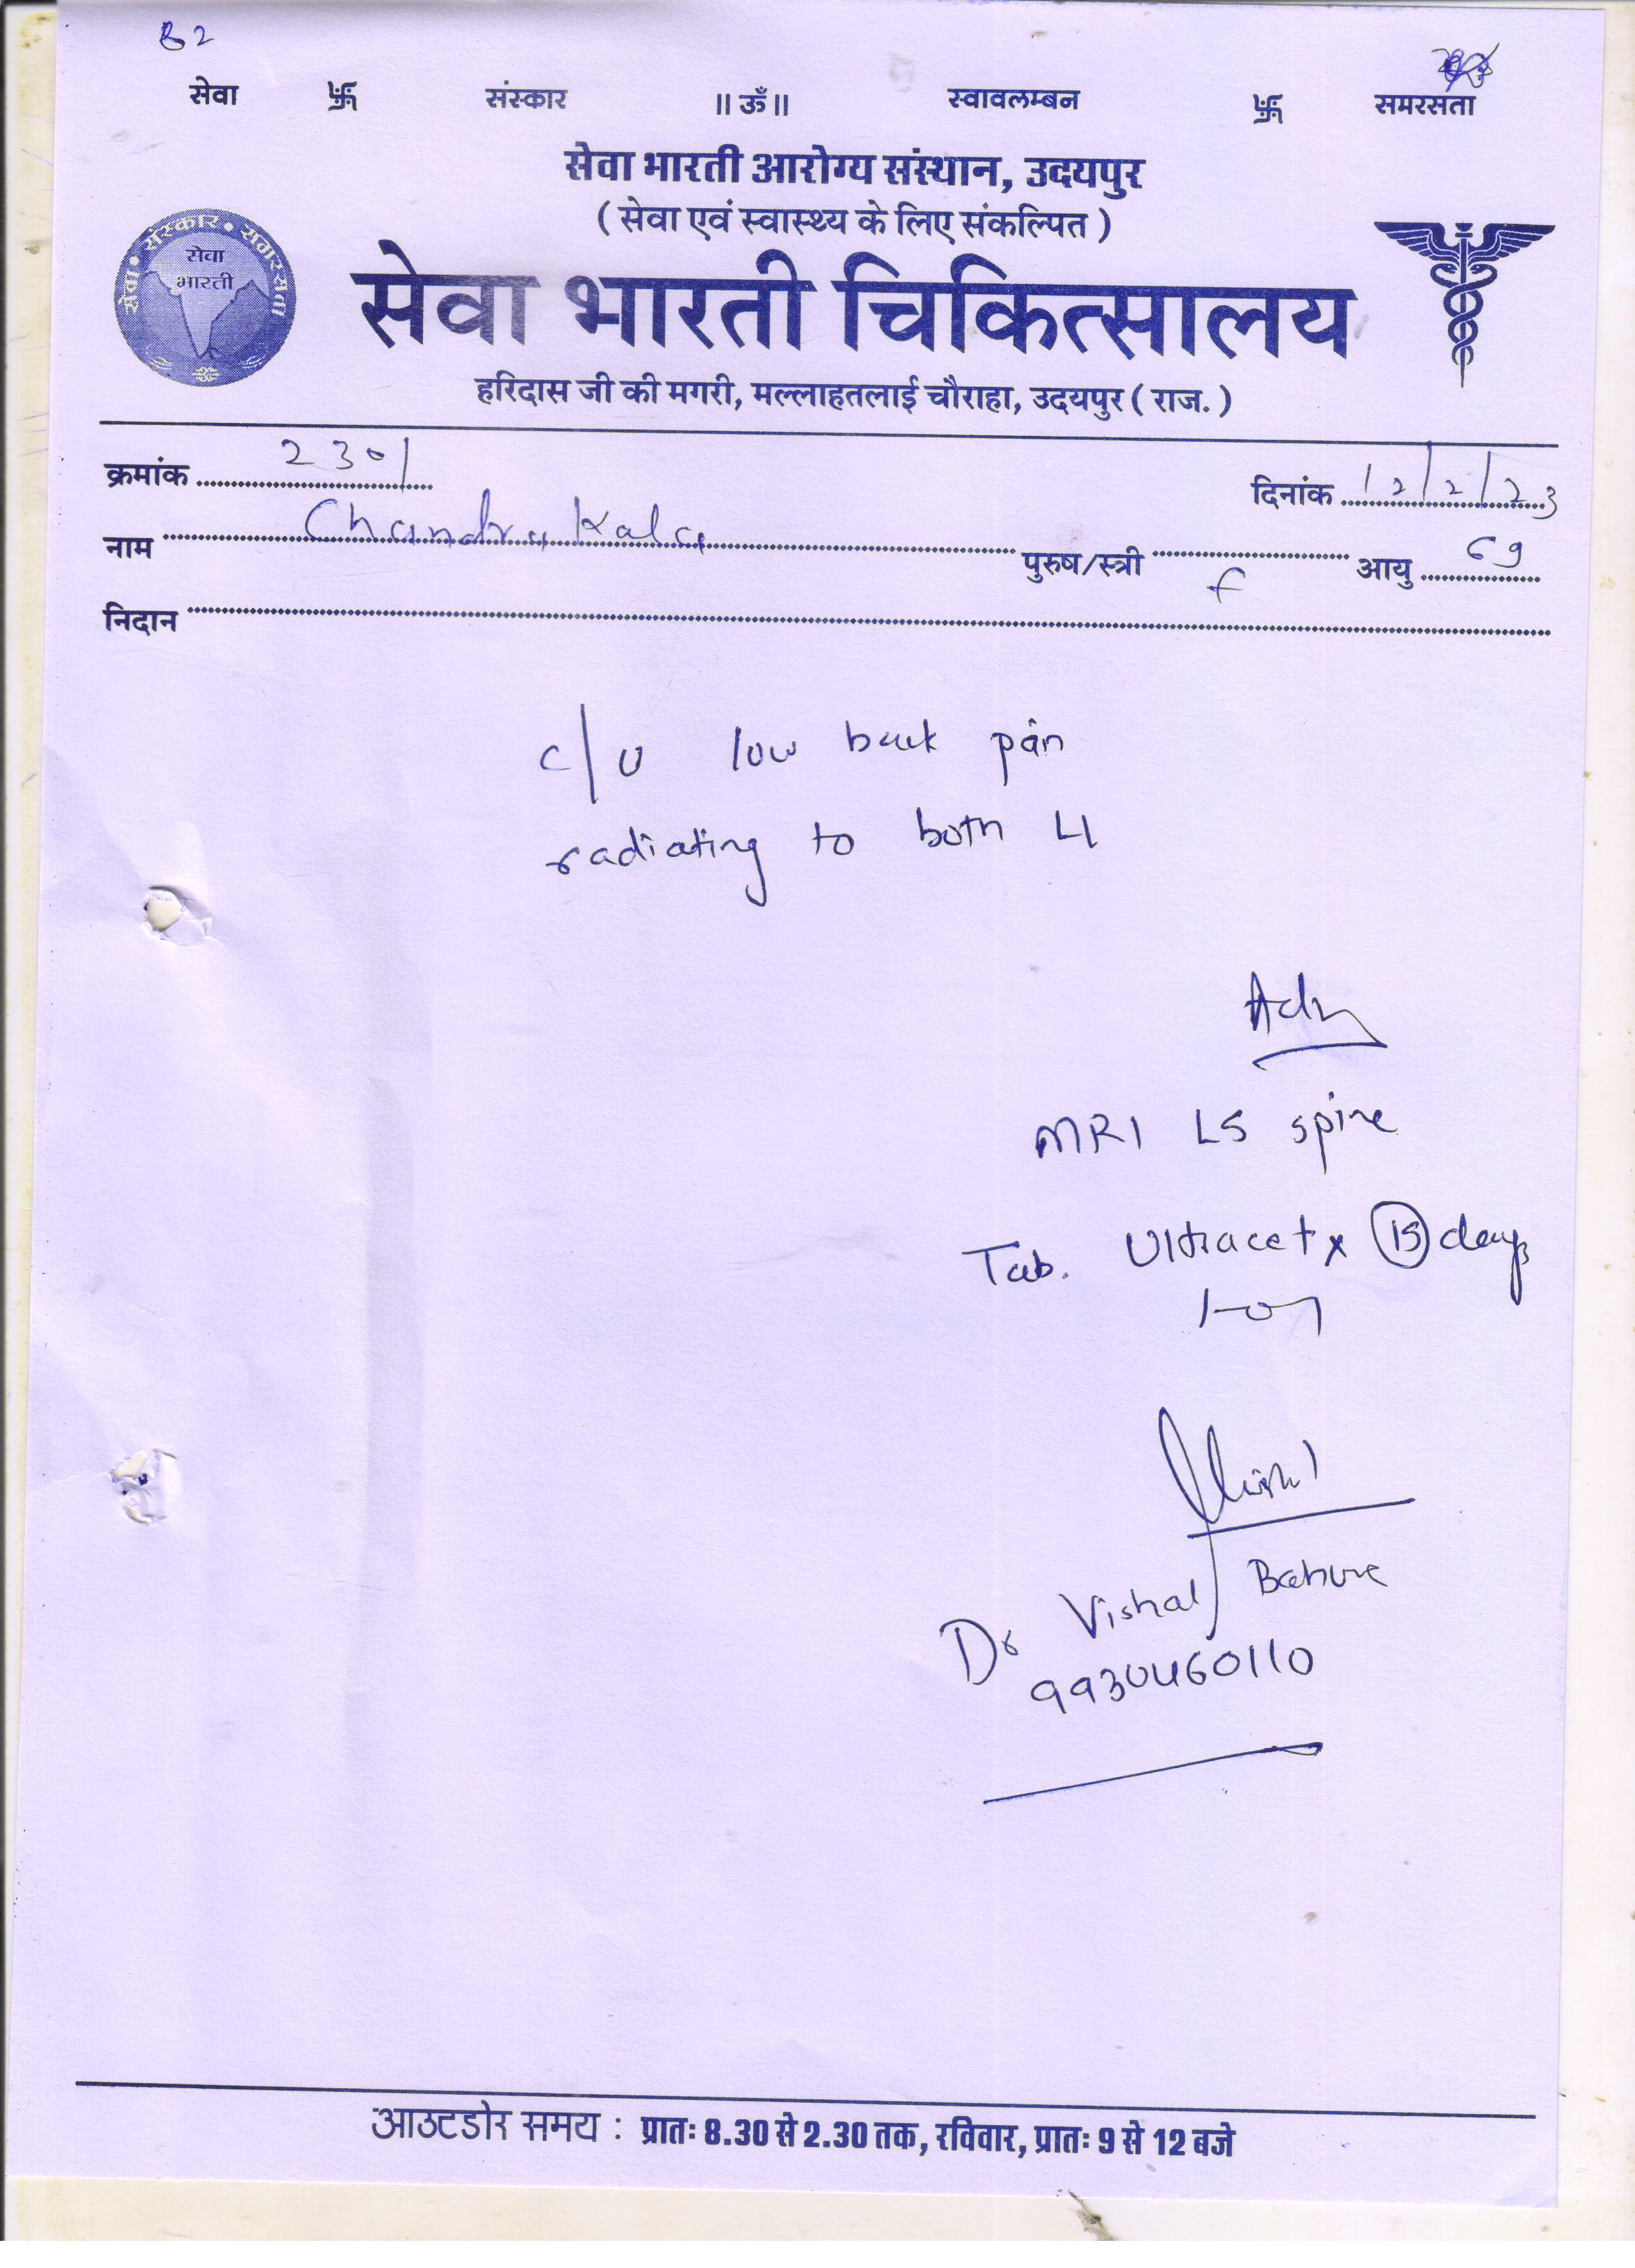 82
सेवा 卐 संस्कार ॥ ॐ ॥ स्वावलम्बन 卐 समरसता
सेवा भारती आरोग्य संस्थान, उदयपुर
( सेवा एवं स्वास्थ्य के लिए संकल्पित )
सेवा • संस्कार • समरसता
सेवा
भारती
सेवा भारती चिकित्सालय
हरिदास जी की मगरी, मल्लाहतलाई चौराहा, उदयपुर ( राज. )
क्रमांक 2301 दिनांक 12/2/23
नाम Chandra Kala पुरुष/स्त्री f आयु 69
निदान
c/o low back pain
radiating to both LL
Adv
MRI LS spine
Tab. Ultracet x 15 days
1-0-1
Dr Vishal
9930460110
आउटडोर समय : प्रातः 8.30 से 2.30 तक, रविवार, प्रातः 9 से 12 बजे